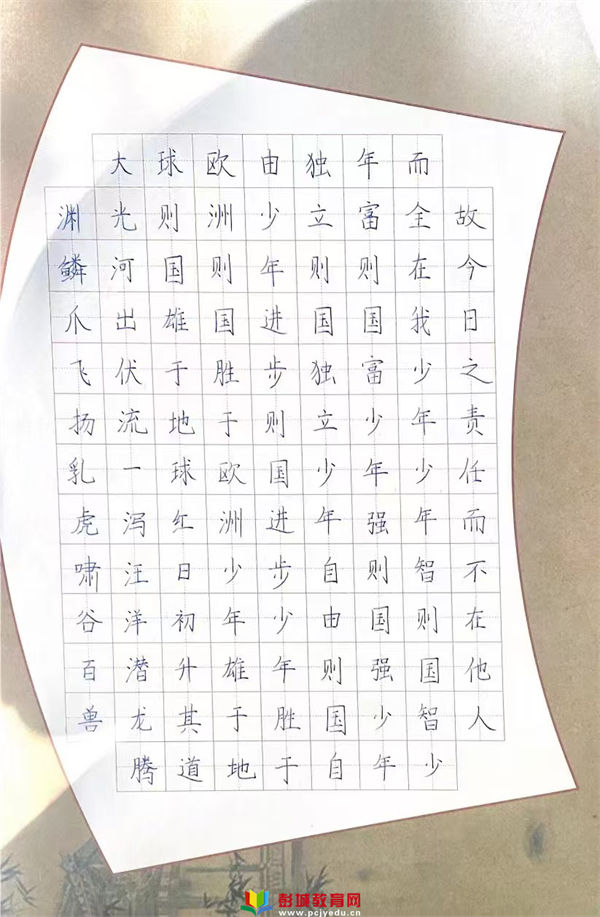 故今日之责任而不在他人
而全在我少年少年智则国智少
年富则国富少年强则国强少年
独立则国独立少年自由则国自
由少年进步则国进步少年胜于
欧洲则国胜于欧洲少年雄于地
球则国雄于地球红日初升其道
大光河出伏流一泻汪洋潜龙腾
渊鳞爪飞扬乳虎啸谷百兽
彭城教育网
www.pcjyedu.cn